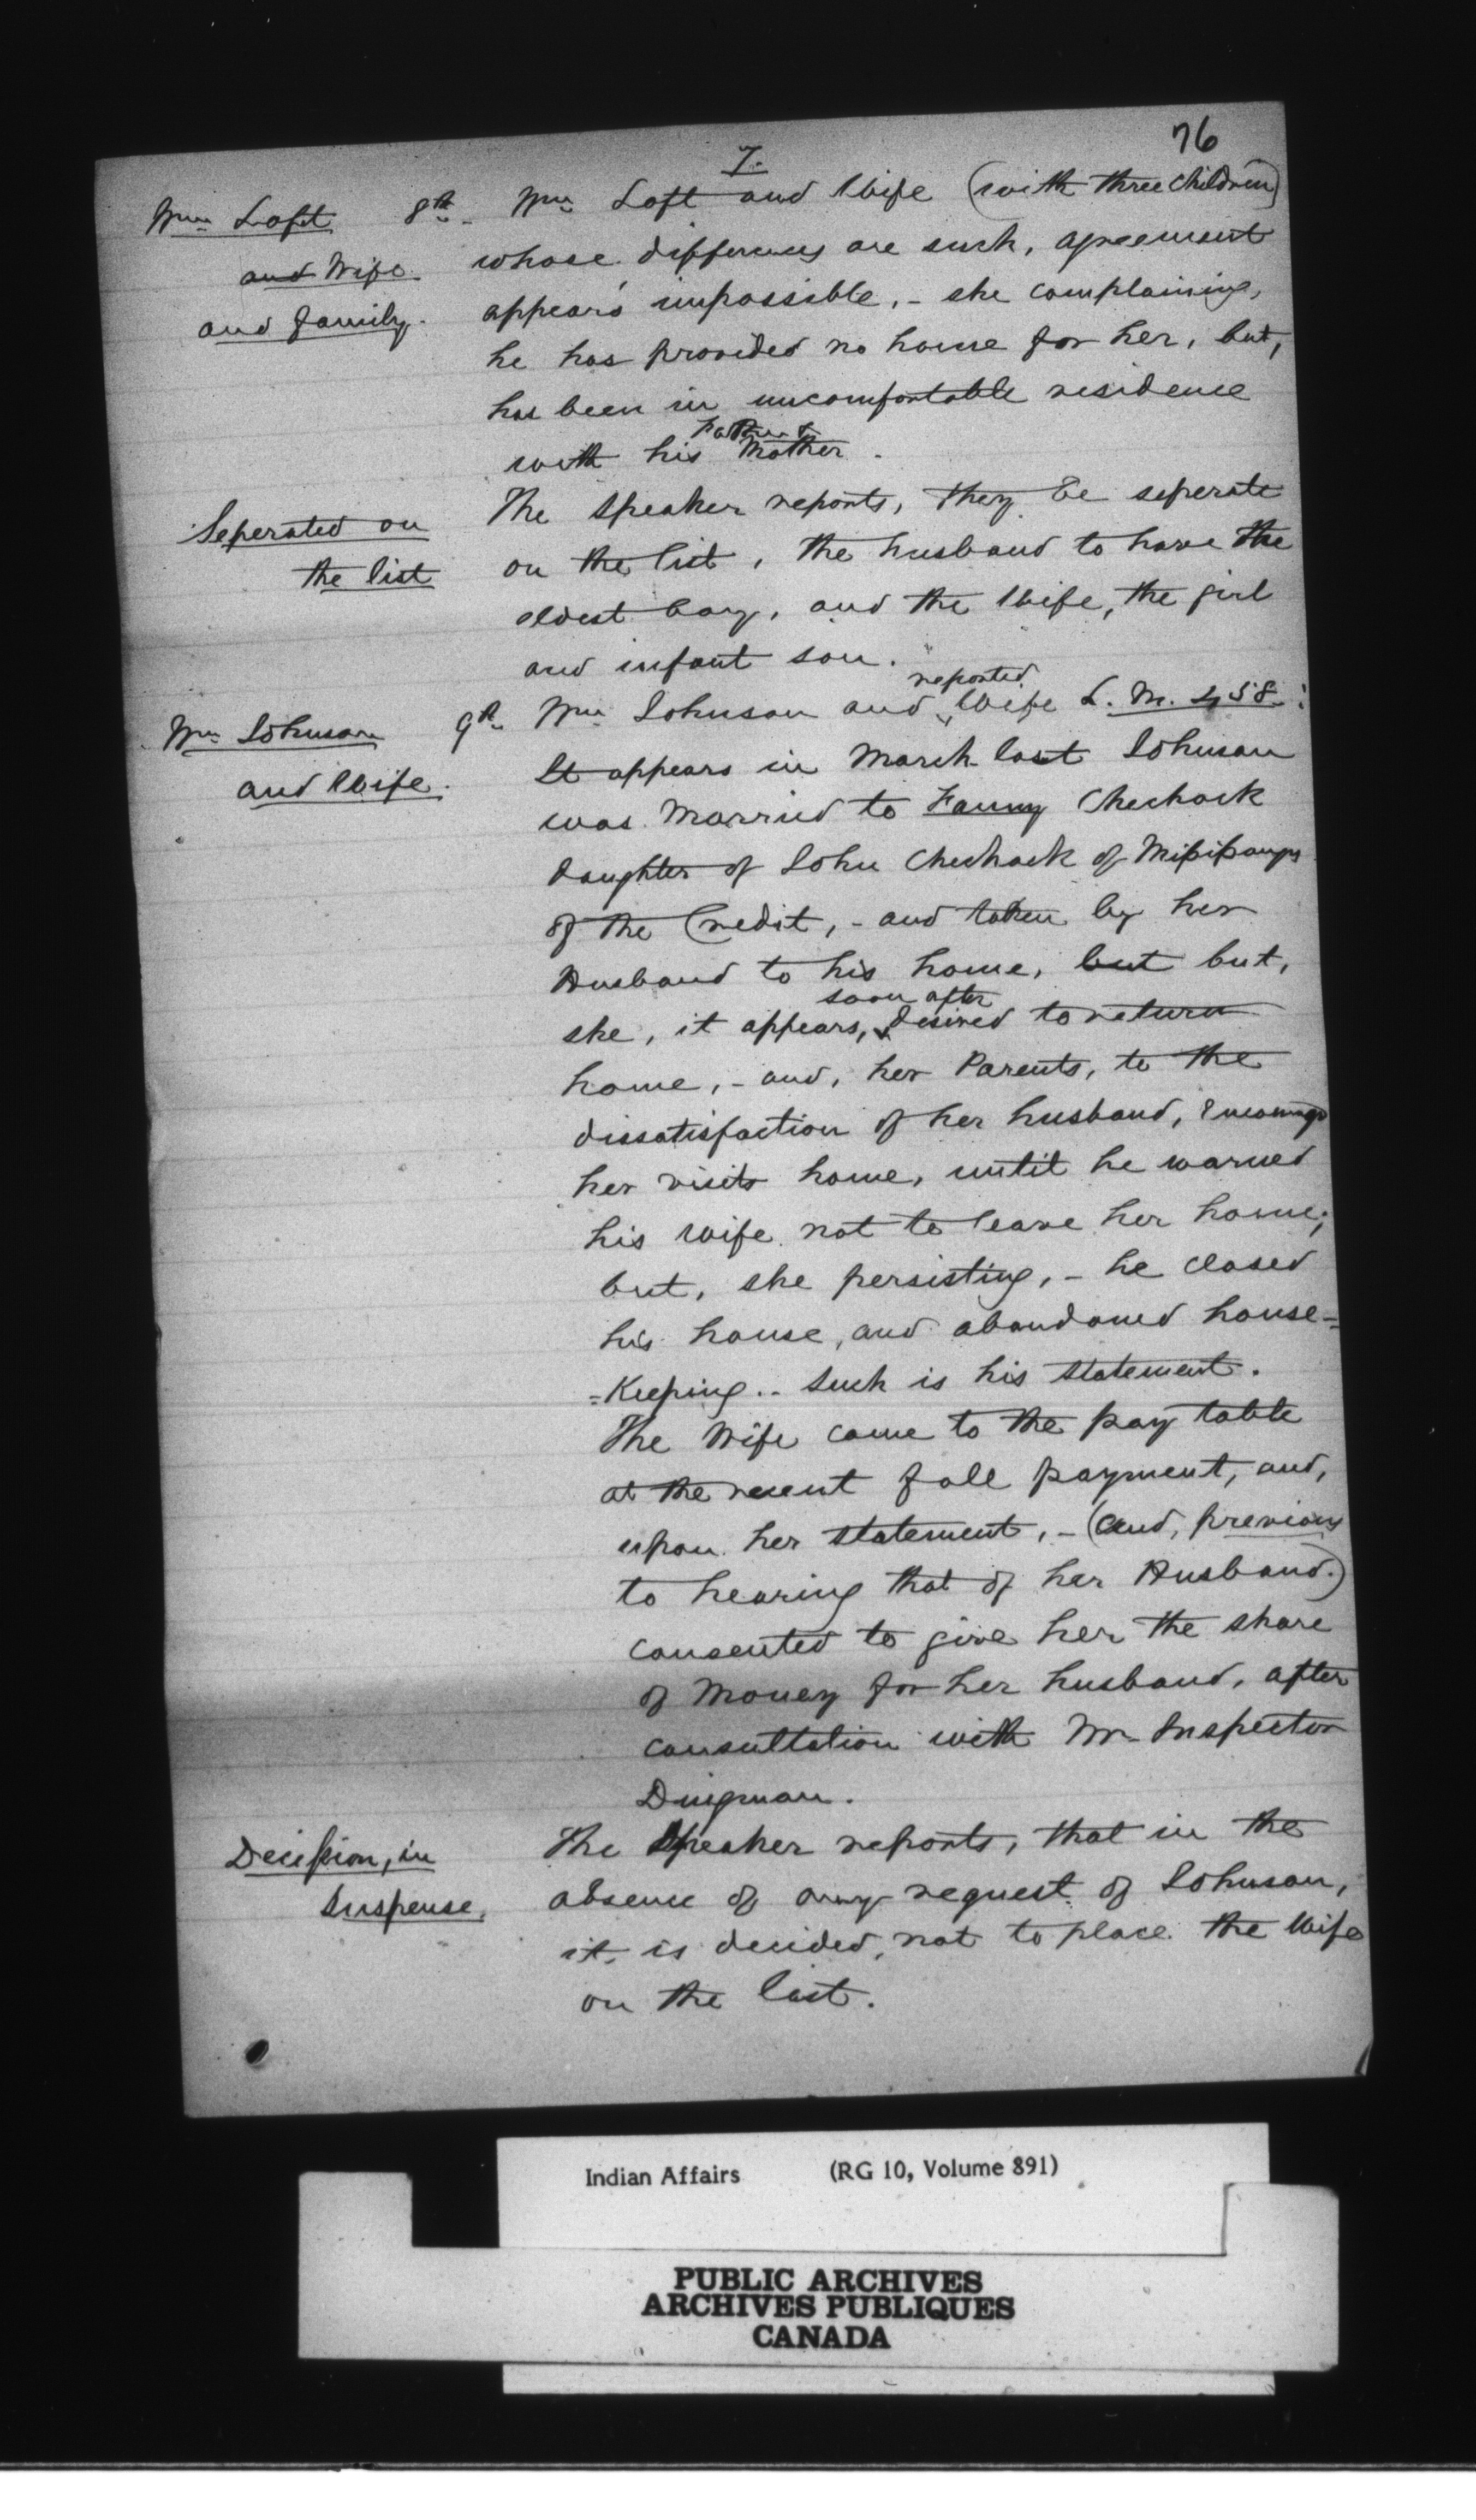 76
7.
Wm Loft 8th Wm Loft and Wife (with three children)
and Wife whose differences are such, agreement
and family. appears impossible, - she complaining,
he has provided no home for her, but,
has been in uncomfortable residence
Father &
with his Mother.
Seperated on The Speaker reports, they be seperate
the list on the list, the husband to have the
eldest boy, and the Wife, the girl
and infant son.
reported
Wm Johnson 9th Wm Johnson and Wife L. M. 458:
and Wife. It appears in March last Johnson
was Married to Fanny Chechock
daughter of John Chechock of Missisaugas
of the Credit, - and taken by her
Husband to his home, but but,
soon after
she, it appears, desired to return
home, - and, her Parents, to the
dissatisfaction of her husband, encourage
her visits home, until he warned
his wife not to leave her home;
but, she persisting, - he closed
his house, and abandoned house=
=Keeping.. Such is his statement.
The Wife came to the pay table
at the recent fall payment, and,
upon her statement, - (and, previous
to hearing that of her Husband.)
consented to give her the share
of Money for her husband, after
consultation with Mr Inspector
Dingman.
Decission, in The Speaker reports, that in the
Suspense. absence of any request of Johnson,
it, is decided, not to place the Wife
on the list.
Indian Affairs (RG 10, Volume 891)
PUBLIC ARCHIVES
ARCHIVES PUBLIQUES
CANADA